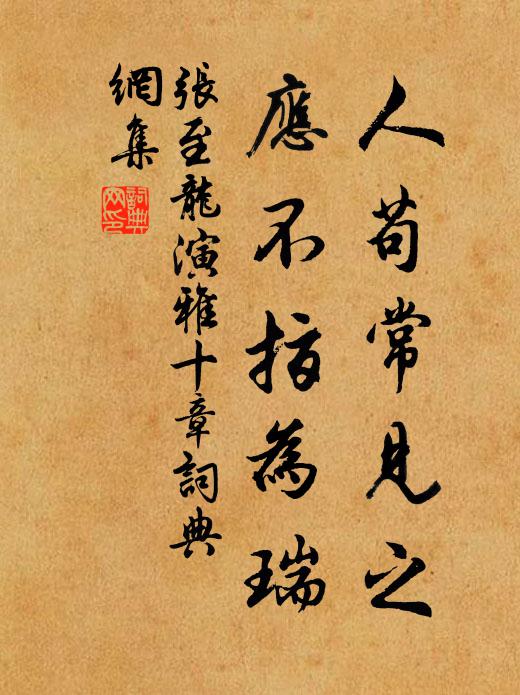 人苟常見之
應不指為瑞
張至龍演雅十章詞典
網集
詞典網印